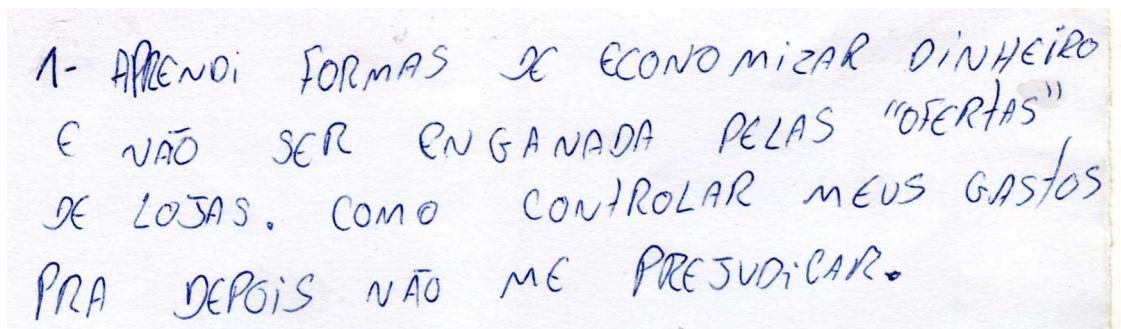 1- APRENDI FORMAS DE ECONOMIZAR DINHEIRO
E NÃO SER ENGANADA PELAS "OFERTAS"
DE LOJAS. COMO CONTROLAR MEUS GASTOS
PRA DEPOIS NÃO ME PREJUDICAR.